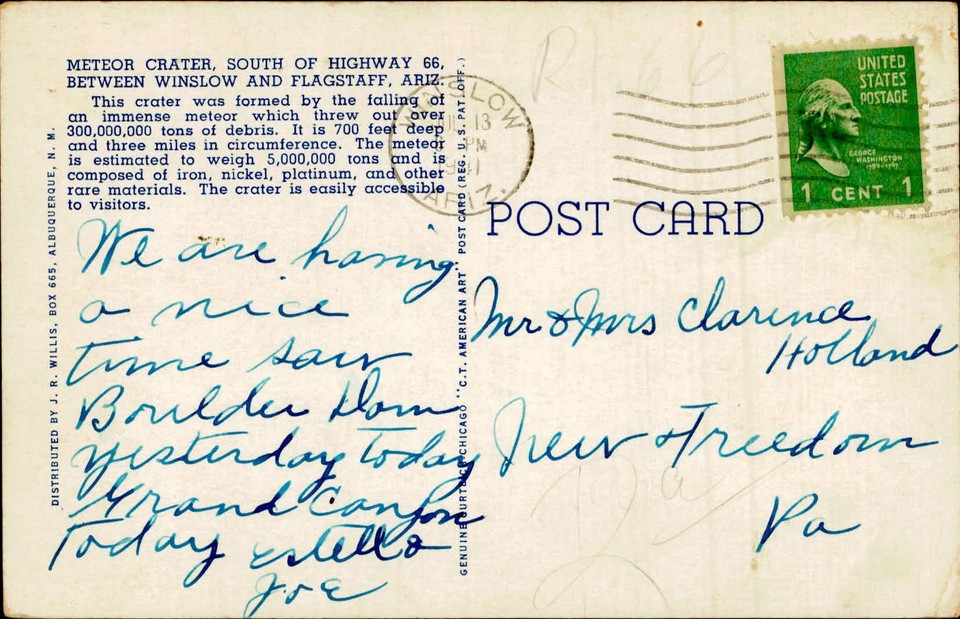 METEOR CRATER, SOUTH OF HIGHWAY 66,
BETWEEN WINSLOW AND FLAGSTAFF, ARIZ.
This crater was formed by the falling of
an immense meteor which threw out over
300,000,000 tons of debris. It is 700 feet deep
and three miles in circumference. The meteor
is estimated to weigh 5,000,000 tons and is
composed of iron, nickel, platinum, and other
rare materials. The crater is easily accessible
to visitors.
We are having
a nice
time saw
Boulder Dam
yesterday Today
Grand Canyon
Today Estella
Joe
DISTRIBUTED BY J. R. WILLIS, BOX 665, ALBUQUERQUE, N. M.
GENUINE CURTEICH-CHICAGO "C.T. AMERICAN ART" POST CARD (REG. U.S. PAT. OFF.)
WINSLOW
13
PM
1941
ARIZ.
UNITED
STATES
POSTAGE
GEORGE
WASHINGTON
1789-1797
1 CENT 1
POST CARD
Mr & Mrs Clarence
Holland
New Freedom
Pa